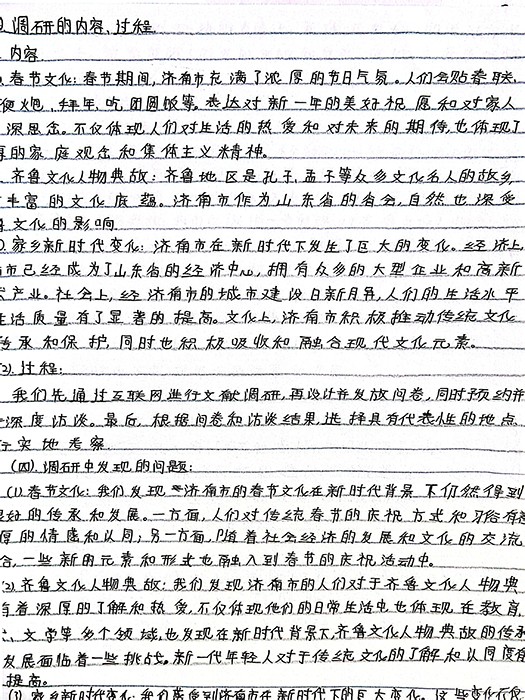 调研的内容、过程
内容
春节文化:春节期间,济南市充满了浓厚的节日气氛。人们会贴春联、
炮、拜年、吃团圆饭等。表达对新一年的美好祝愿和对家人
深思念。不仅体现人们对生活的热爱和对未来的期待,也体现了
的家庭观念和集体主义精神。
齐鲁文化人物典故:齐鲁地区是孔子、孟子等众多文化名人的故乡,
丰富的文化底蕴。济南市作为山东省的省会,自然也深受
文化的影响
家乡新时代变化:济南市在新时代下发生了巨大的变化。经济上,
市已经成为了山东省的经济中心,拥有众多的大型企业和高新
产业。社会上,经济南市的城市建设日新月异,人们的生活水平
生活质量有了显著的提高。文化上,济南市积极推动传统文化
传承和保护,同时也积极吸收和融合现代文化元素。
(2)过程:
我们先通过互联网进行文献调研,再设计并发放问卷,同时预约并
深度访谈。最后,根据问卷和访谈结果,选择具有代表性的地点
行实地考察
(四)调研中发现的问题:
(1)春节文化:我们发现济南市的春节文化在新时代背景下仍然得到
很好的传承和发展。一方面,人们对传统春节的庆祝方式和习俗有
厚的情感和认同;另一方面,随着社会经济的发展和文化的交流
合,一些新的元素和形式也融入到春节的庆祝活动中。
(2)齐鲁文化人物典故:我们发现济南市的人们对于齐鲁文化人物典
有着深厚的了解和热爱,不仅体现他们的日常生活中,也体现在教育
、文学等多个领域,也发现在新时代背景下,齐鲁文化人物典故的传承
发展面临着一些挑战。新一代年轻人对于传统文化的了解和认同度有
提高。
家乡新时代变化:我们感受到济南市在新时代下的巨大变化。这些变化